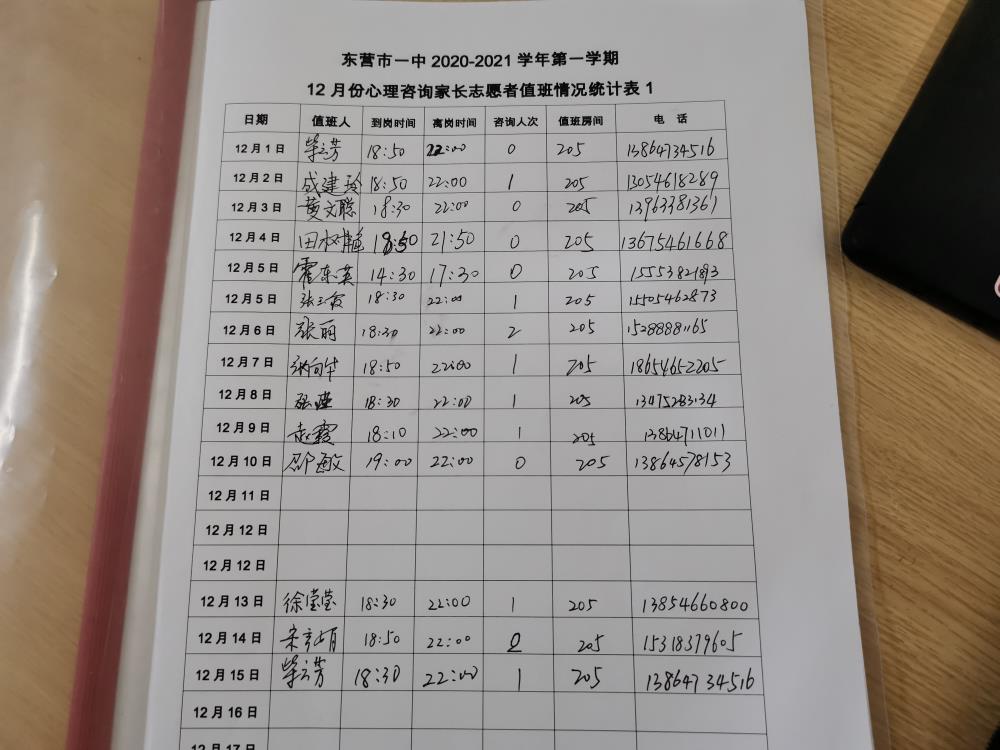 东营市一中 2020-2021 学年第一学期
12 月份心理咨询家长志愿者值班情况统计表 1
日期 值班人 到岗时间 离岗时间 咨询人次 值班房间 电 话
12 月 1 日 18:50 22:00 0 205 13864734516
12 月 2 日 成建玲 18:50 22:00 1 205 13054618289
12 月 3 日 黄文聪 18:30 22:00 0 205 13963381361
12 月 4 日 21:50 0 205 13675461668
12 月 5 日 霍东英 14:30 17:30 0 205
12 月 5 日 18:30 22:00 1 205 15505462873
12 月 6 日 张丽 18:30 22:00 2 205 15288881165
12 月 7 日 18:50 22:00 1 205 18654652205
12 月 8 日 18:30 22:00 1 205 13475283134
12 月 9 日 赵霞 18:10 22:00 1 205 13864711011
12 月 10 日 邵敏 19:00 22:00 0 205 13864578153
12 月 11 日
12 月 12 日
12 月 12 日
12 月 13 日 徐莹莹 18:30 22:00 1 205 13854660800
12 月 14 日 18:50 22:00 205 15318379605
12 月 15 日 18:30 22:00 1 205 13864734516
12 月 16 日
12 月 17 日